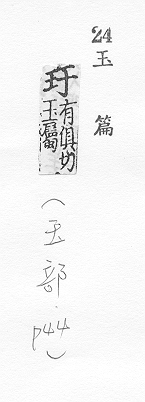 24
玉篇
玗
有俱切
玉屬
(玉部.p44)